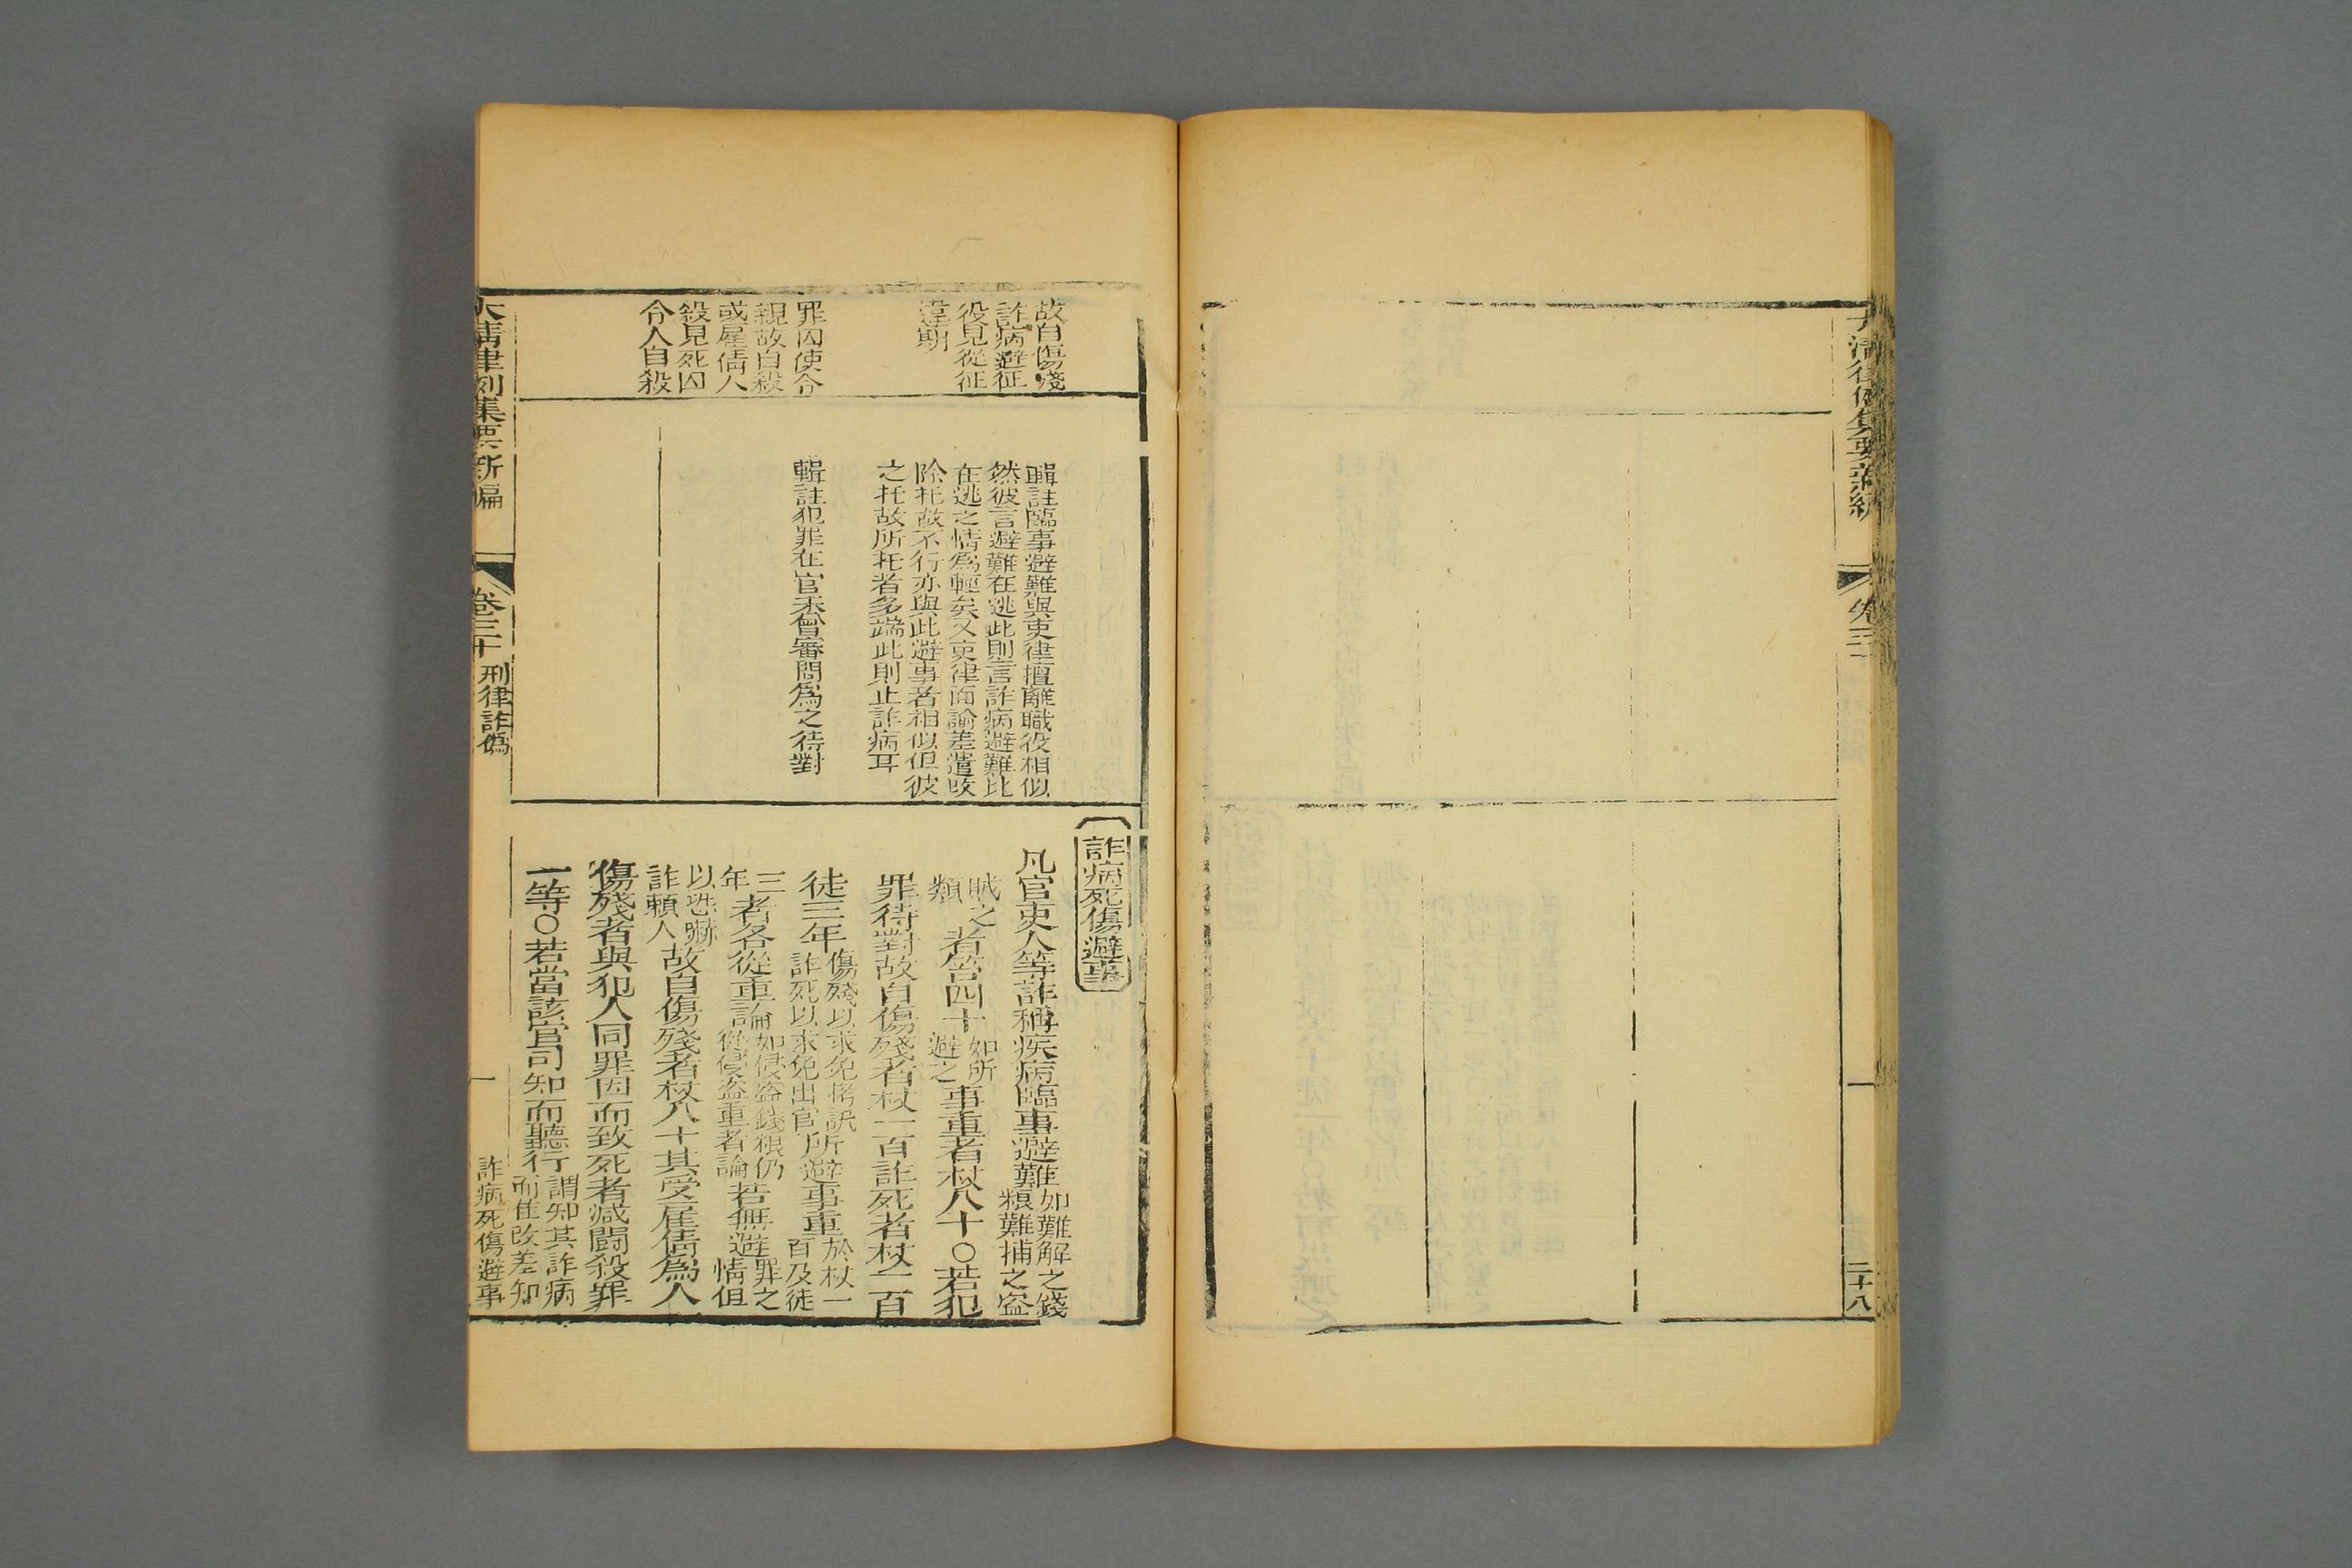 大清律例集要新編
卷三
二十八
故自傷殘
詐病避征
役見從征
違期
罪囚使令
親故自殺
或雇倩人
殺見死囚
令人自殺
輯註臨事避難與吏律擅離職役相似
然彼言避難在逃此則言詐病避難比
在逃之情爲輕矣又吏律面諭差遣改
除托故不行亦與此避事者相似但彼
之托故所托者多端此則止詐病耳
輯註犯罪在官未曾審問爲之待對
詐病死傷避事
凡官吏人等詐稱疾病臨事避難如難解之錢糧難捕之盜
賊之類者笞四十如所避之事重者杖八十〇若犯
罪待對故自傷殘者杖一百詐死者杖一百
徒三年傷殘以求免拷訊詐死以求免出官所避事重於杖一百及徒
三年者各從重論如侵盜錢糧仍從侵盜重者論若無避罪之情但
以恐嚇詐賴人故自傷殘者杖八十其受雇倩爲人
傷殘者與犯人同罪因而致死者減鬪殺罪
一等〇若當該官司知而聽行謂知其詐病而准改差知
大清律例集要新編
卷三十
刑律詐僞
一
詐病死傷避事